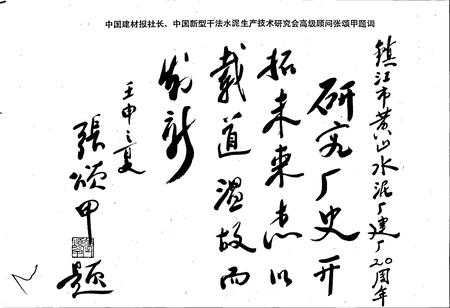 中国建材报社长、中国新型干法水泥生产技术研究会高级顾问张颂甲题词
镇江市黄山水泥厂建厂20周年
研究厂史开
拓未来志以
载道温故而
创新
壬申之夏
張颂甲题